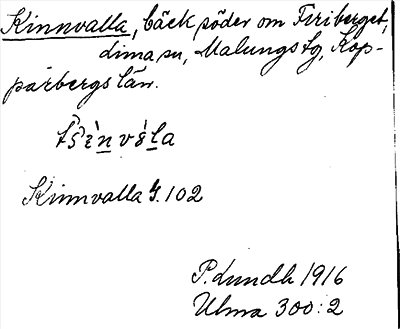 Kinnvalla, bäck söder om Firiberget,
Lima sn, Malungs tg, Kop-
parbergs län.
Kinnvalla G. 102
P. Lundh 1916
Ulma 300:2